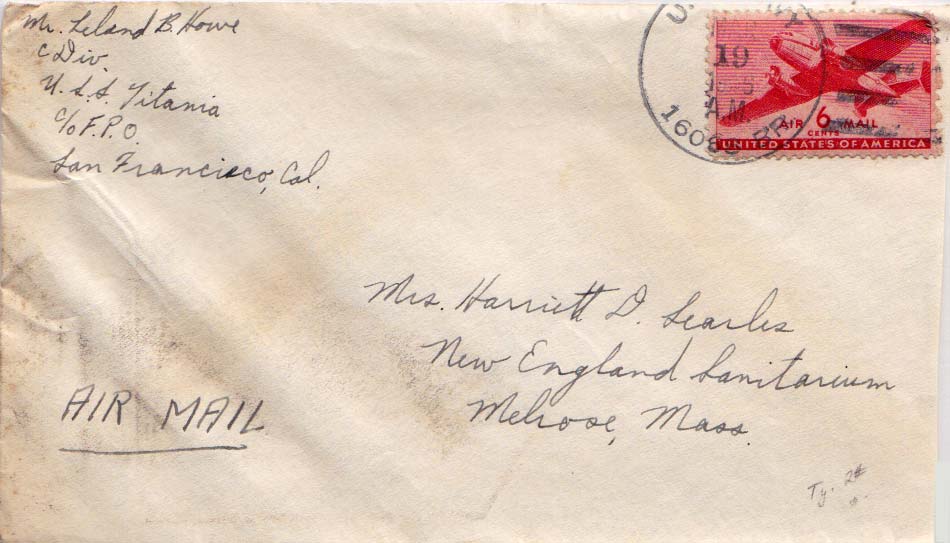 Mr. Leland B. Howe
C Div.
U.S.S. Titania
c/o F.P.O.
San Francisco, Cal.
19
A.M.
AIR 6 MAIL
CENTS
UNITED STATES OF AMERICA
Mrs. Harriett D. Searles
New England Sanitarium
Melrose, Mass.
AIR MAIL
Ty. 2#